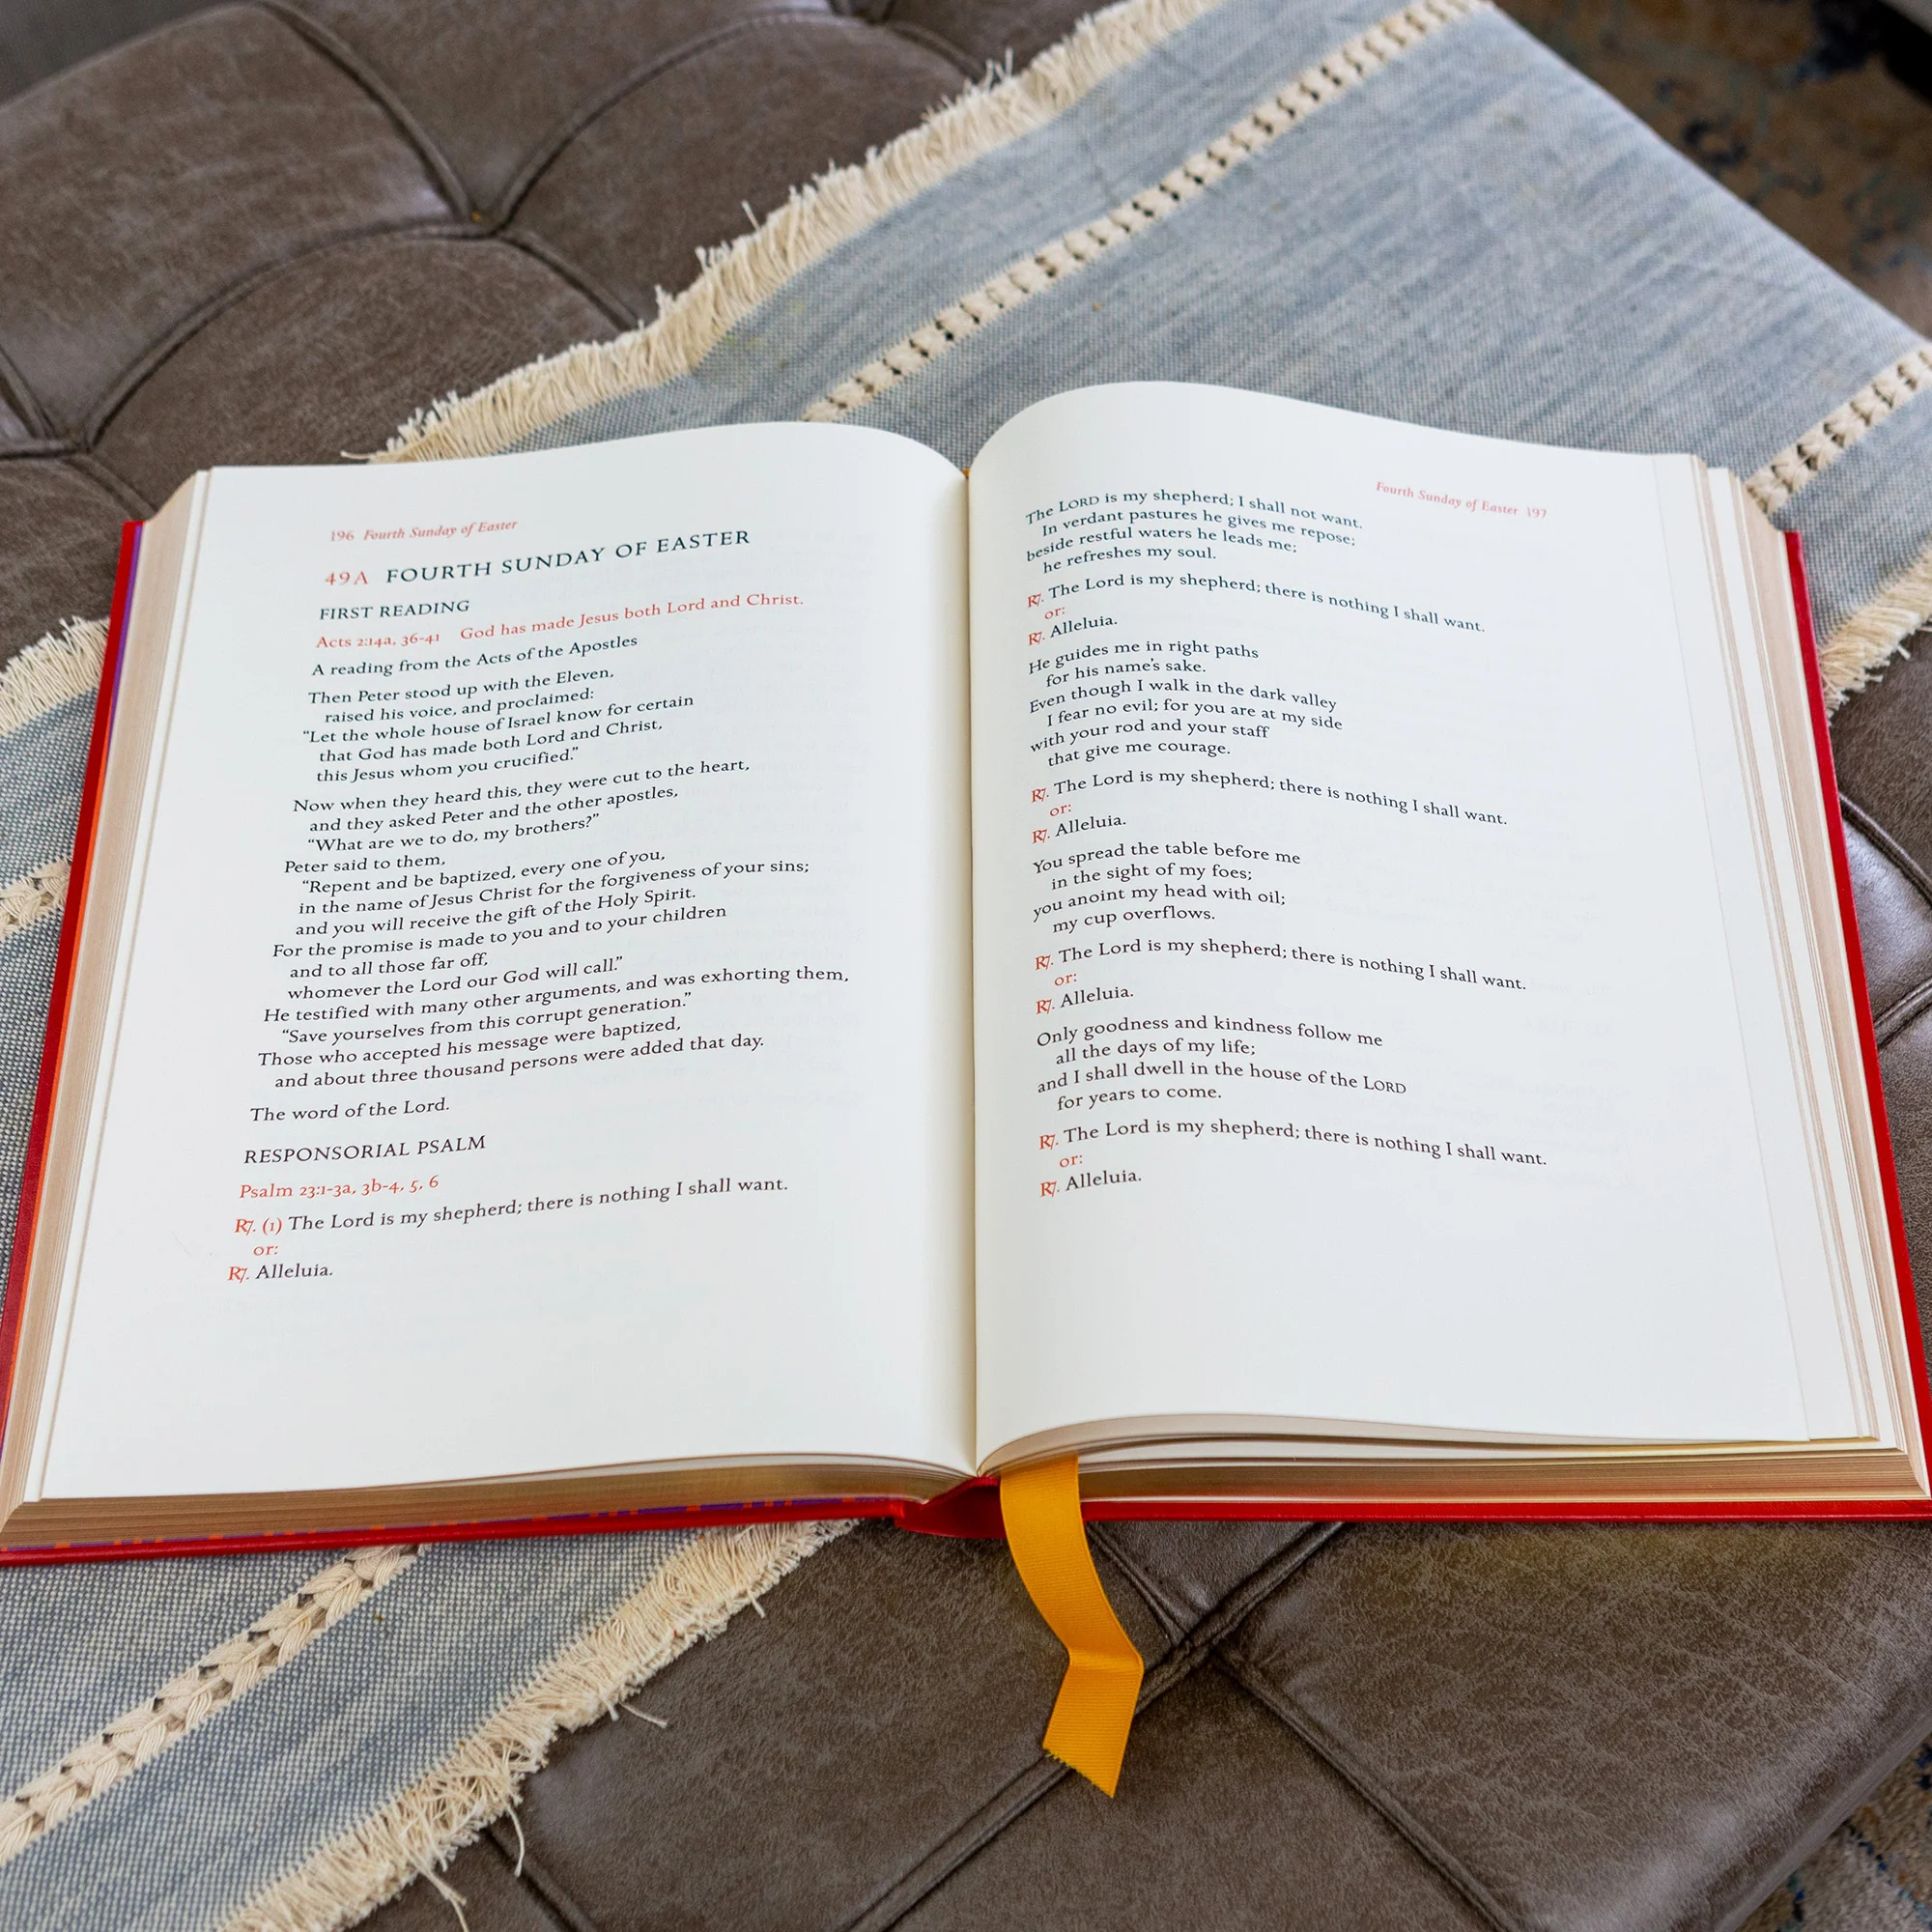 196 Fourth Sunday of Easter
49A FOURTH SUNDAY OF EASTER
FIRST READING
Acts 2:14a, 36-41 God has made Jesus both Lord and Christ.
A reading from the Acts of the Apostles
Then Peter stood up with the Eleven,
raised his voice, and proclaimed:
“Let the whole house of Israel know for certain
that God has made both Lord and Christ,
this Jesus whom you crucified.”
Now when they heard this, they were cut to the heart,
and they asked Peter and the other apostles,
“What are we to do, my brothers?”
Peter said to them,
“Repent and be baptized, every one of you,
in the name of Jesus Christ for the forgiveness of your sins;
and you will receive the gift of the Holy Spirit.
For the promise is made to you and to your children
and to all those far off,
whomever the Lord our God will call.”
He testified with many other arguments, and was exhorting them,
“Save yourselves from this corrupt generation.”
Those who accepted his message were baptized,
and about three thousand persons were added that day.
The word of the Lord.
RESPONSORIAL PSALM
Psalm 23:1-3a, 3b-4, 5, 6
℟. (1) The Lord is my shepherd; there is nothing I shall want.
or:
℟. Alleluia.
Fourth Sunday of Easter 197
The LORD is my shepherd; I shall not want.
In verdant pastures he gives me repose;
beside restful waters he leads me;
he refreshes my soul.
℟. The Lord is my shepherd; there is nothing I shall want.
or:
℟. Alleluia.
He guides me in right paths
for his name's sake.
Even though I walk in the dark valley
I fear no evil; for you are at my side
with your rod and your staff
that give me courage.
℟. The Lord is my shepherd; there is nothing I shall want.
or:
℟. Alleluia.
You spread the table before me
in the sight of my foes;
you anoint my head with oil;
my cup overflows.
℟. The Lord is my shepherd; there is nothing I shall want.
or:
℟. Alleluia.
Only goodness and kindness follow me
all the days of my life;
and I shall dwell in the house of the LORD
for years to come.
℟. The Lord is my shepherd; there is nothing I shall want.
or:
℟. Alleluia.